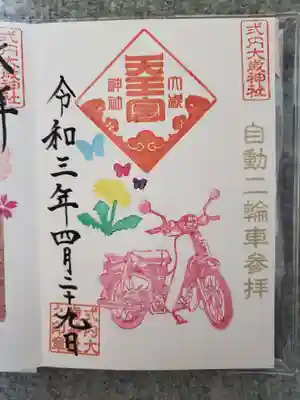 式内大歳神社
自動二輪車参拝
大歳
天王宮
神社
令和三年四月二十九日